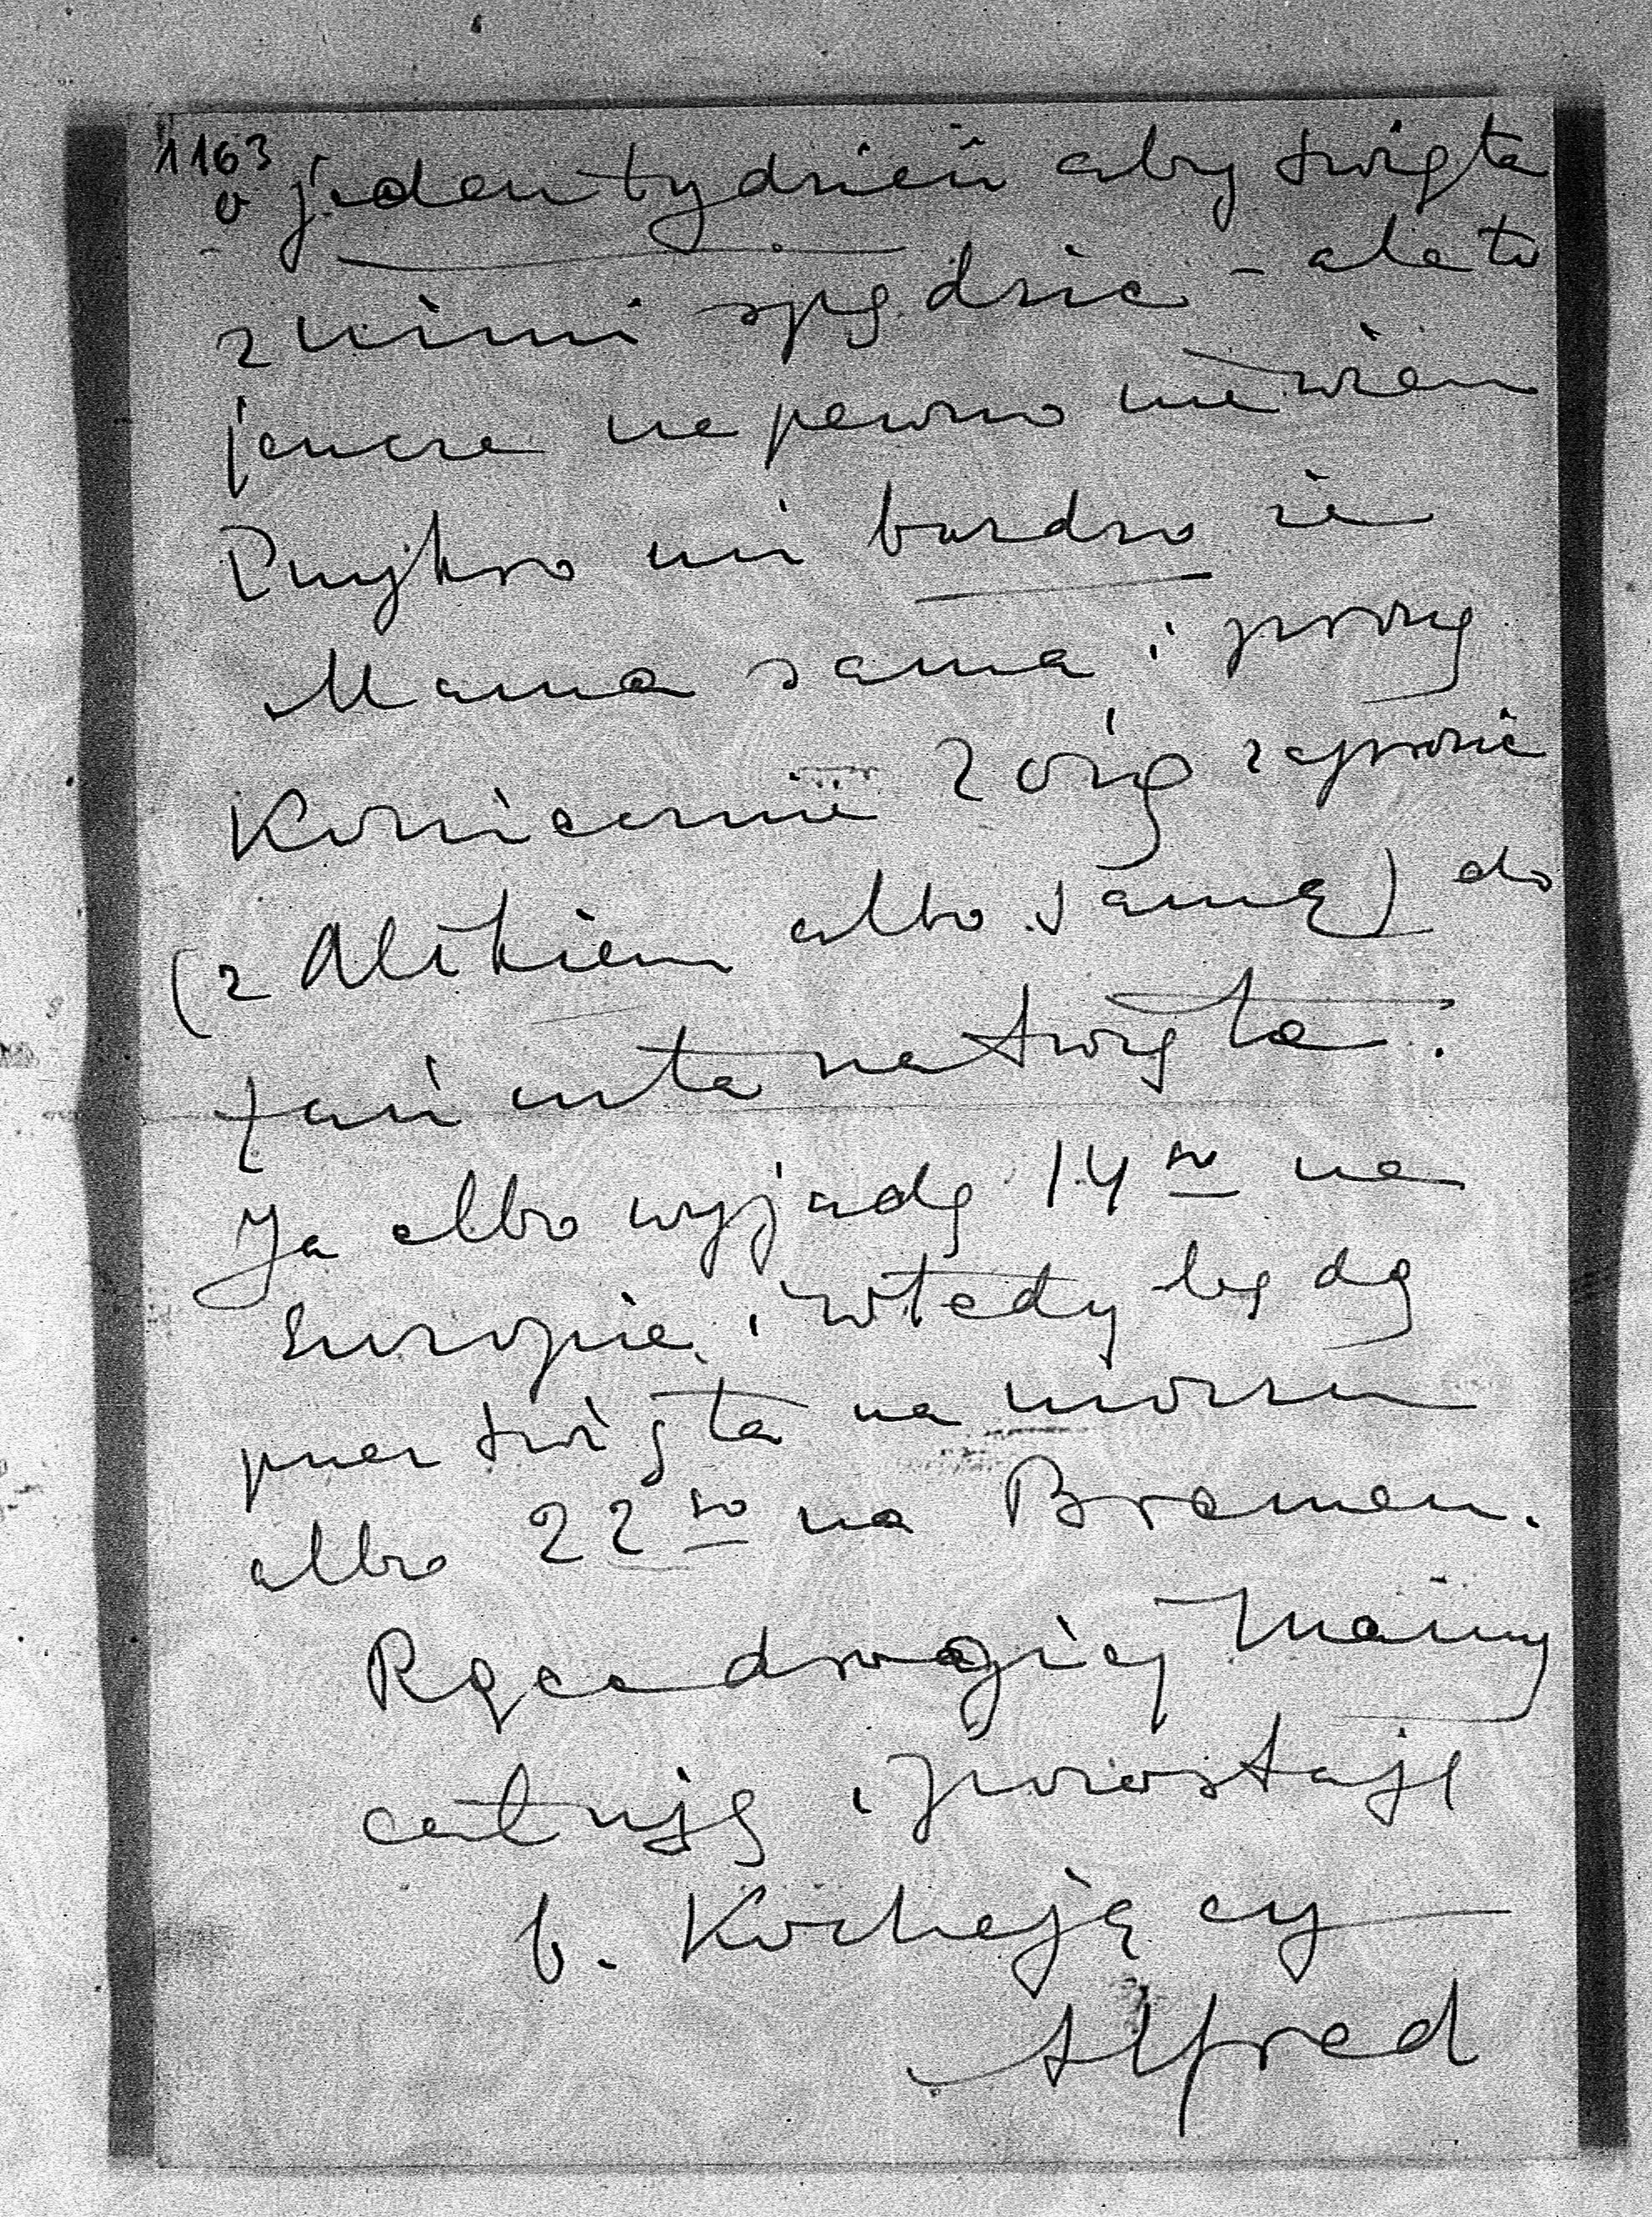 1163
o jeden tydzień aby święta
z nimi spędzić - ale to
jeszcze na pewno nie wiem
Przykro mi bardzo że
Mama sama i proszę
Koniecznie Zosię zaprosić
(z Alikiem albo samą) do
na święta.
Ja albo wyjadę 14go na
Europie i wtedy będę
przez święta na morzu
albo 22go na Bremen.
Ręce drogiej Mamy
całuję i pozostaję
b. Kochający
Alfred